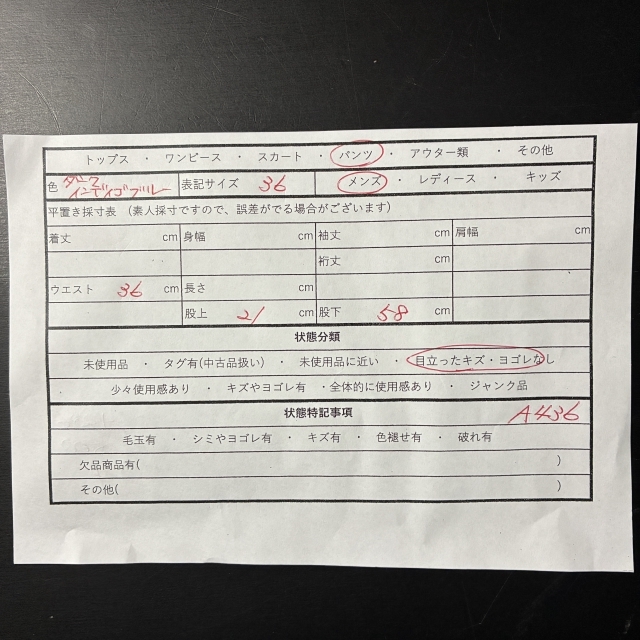 トップス ・ ワンピース ・ スカート ・ パンツ ・ アウター類 ・ その他
色 ダークインディゴブルー 表記サイズ 36 メンズ ・ レディース ・ キッズ
平置き採寸表 (素人採寸ですので、誤差がでる場合がございます)
着丈 cm 身幅 cm 袖丈 cm 肩幅 cm
裄丈 cm
ウエスト 36 cm 長さ cm
股上 21 cm 股下 58 cm
状態分類
未使用品 ・ タグ有(中古品扱い) ・ 未使用品に近い ・ 目立ったキズ・ヨゴレなし
少々使用感あり ・ キズやヨゴレ有 ・全体的に使用感あり ・ ジャンク品
状態特記事項 A436
毛玉有 ・ シミやヨゴレ有 ・ キズ有 ・ 色褪せ有 ・ 破れ有
欠品商品有( )
その他( )